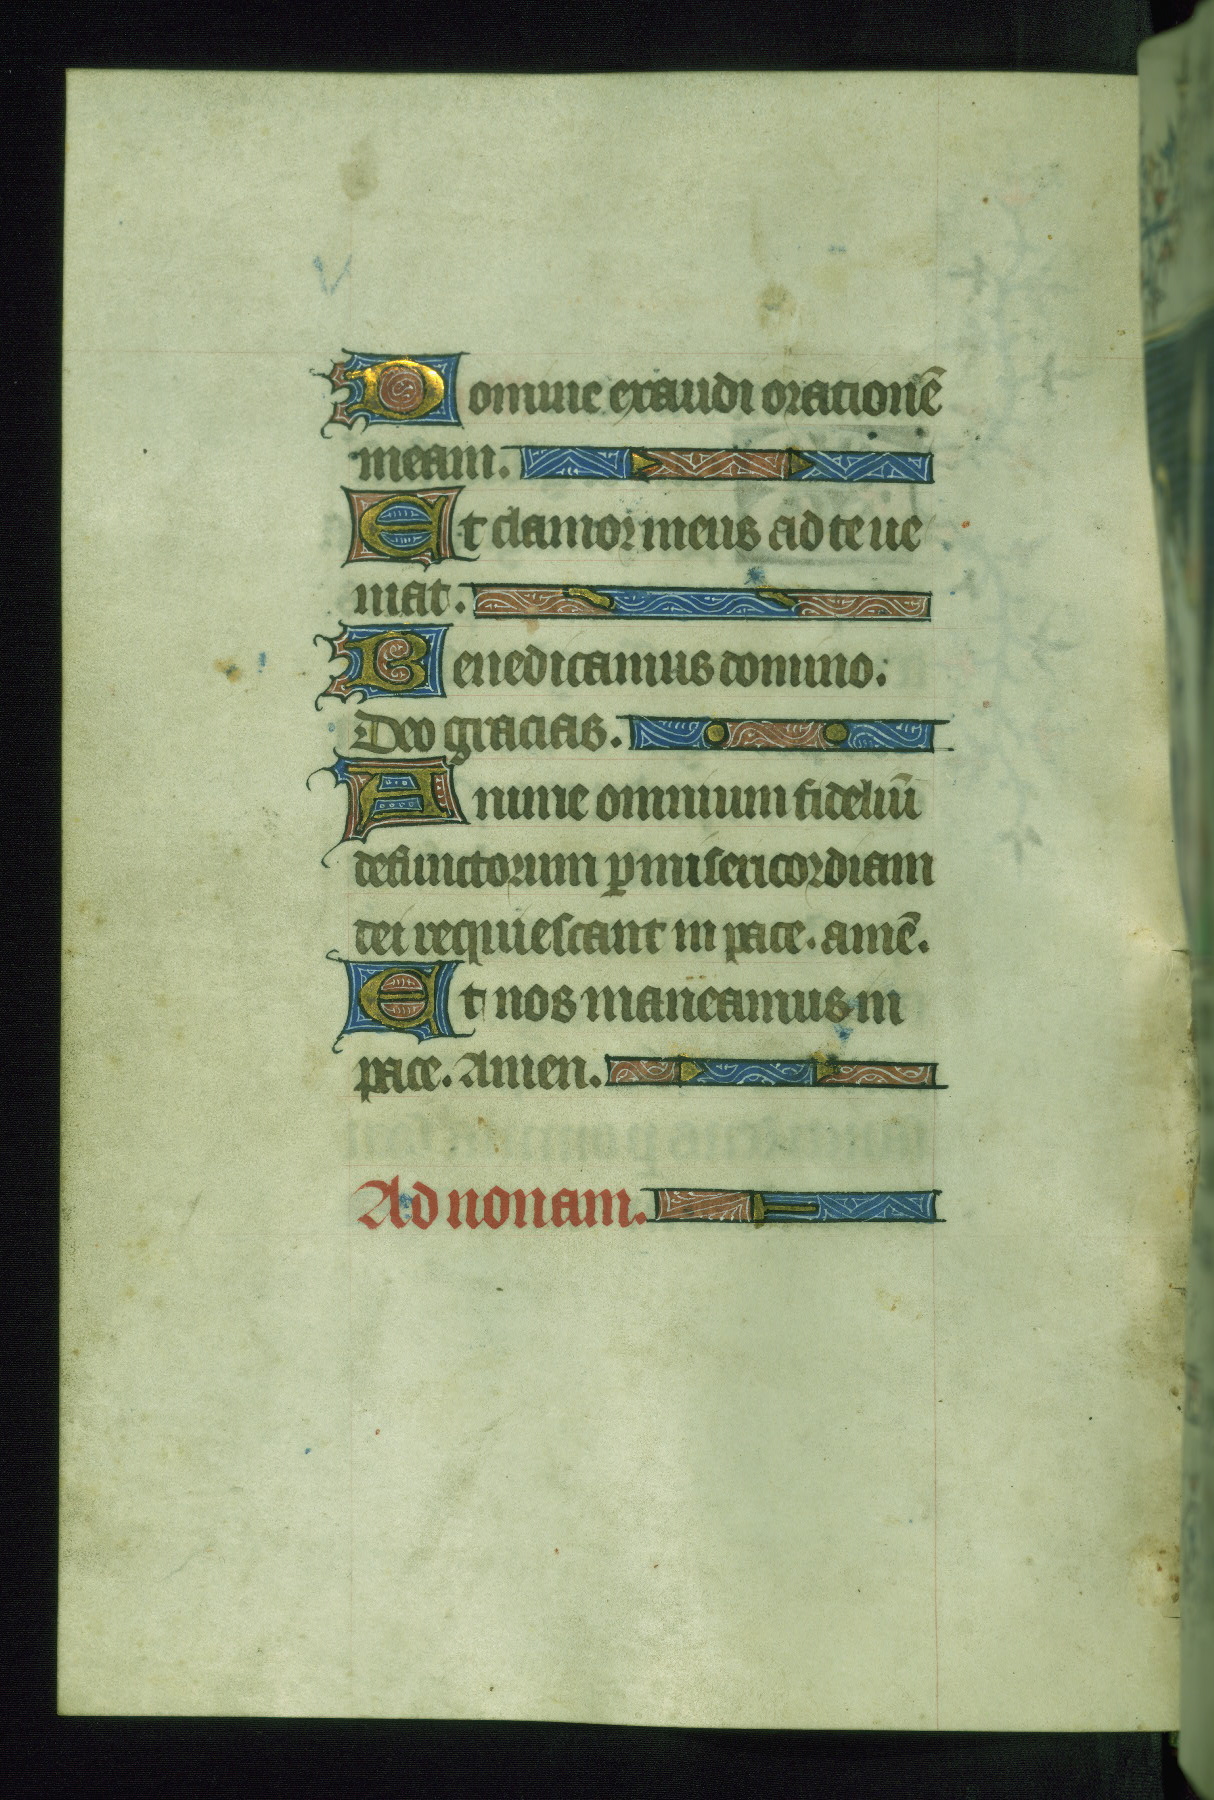 Domine exaudi orationē
meam.
Et clamor meus ad te ue
niat.
Benedicamus domino.
Deo gracias.
Anime omnium fideliū
defunctorum ꝑ misericordiam
dei requiescant in pace. amē.
Et nos maneamus in
pace. Amen.
Ad nonam.